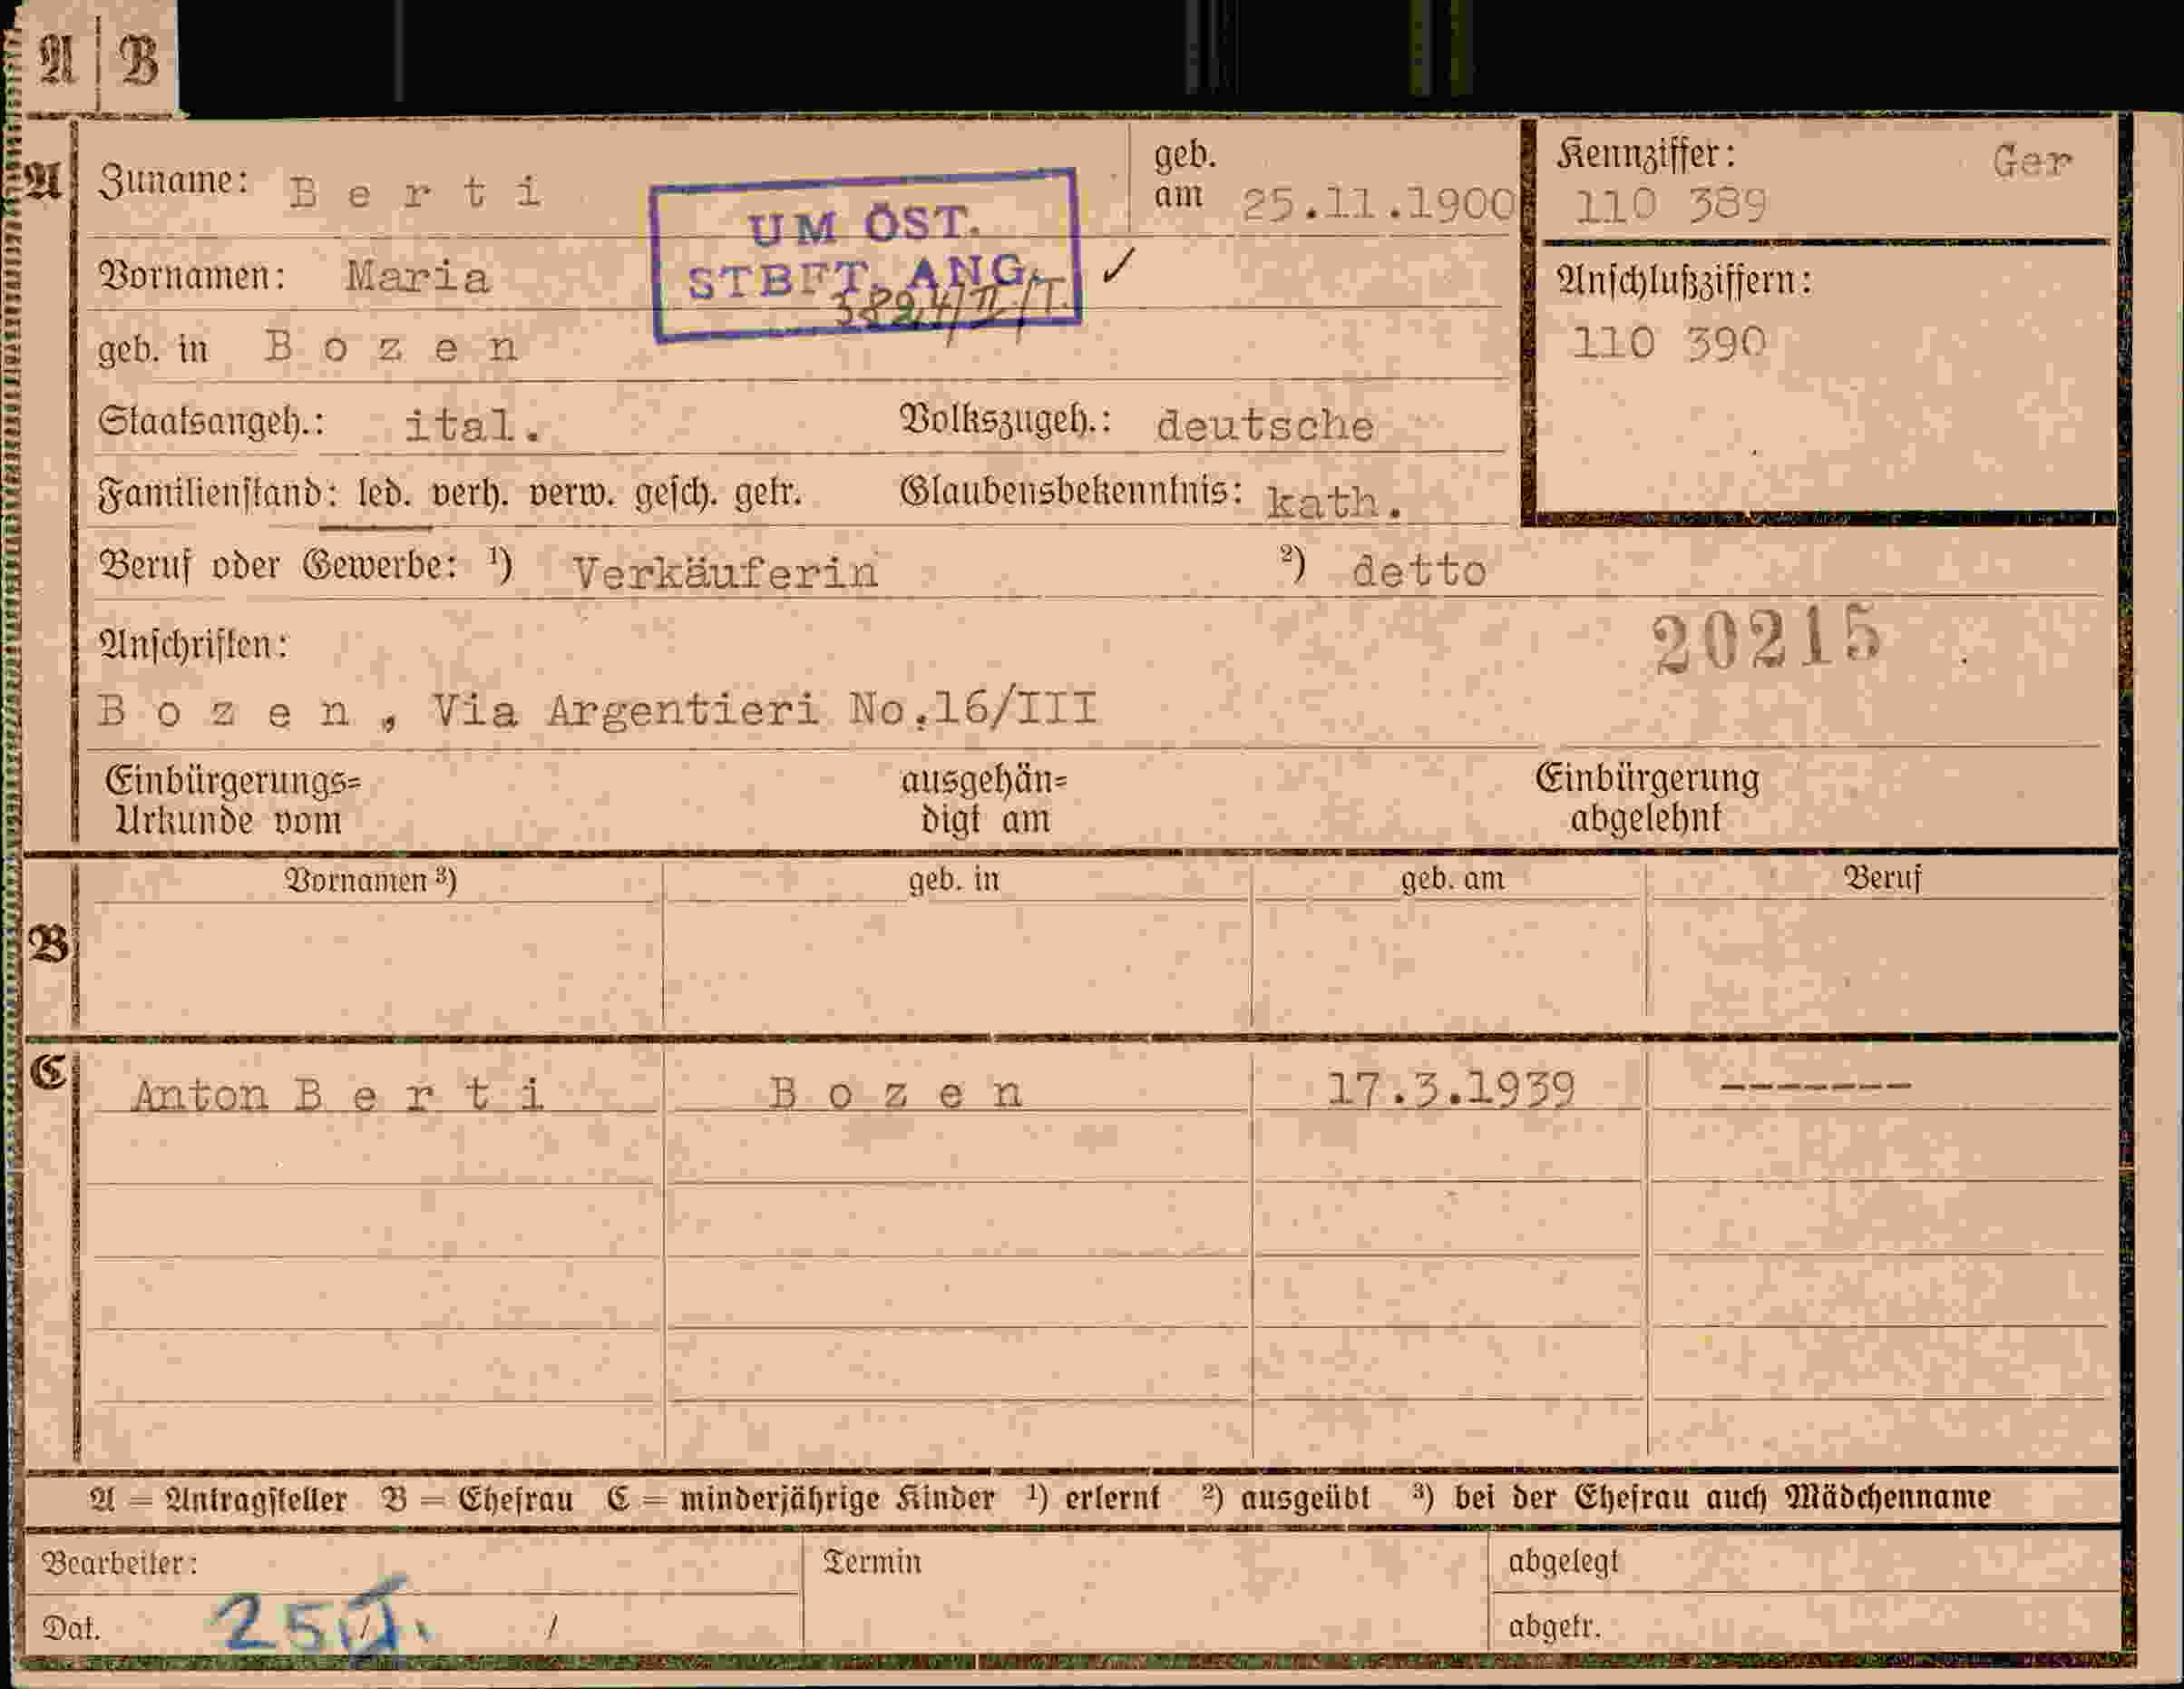 A | B
A
Zuname: B e r t i
geb. am 25.11.1900
Kennziffer: Ger
110 389
UM ÖST.
STBFT. ANG.
3824/II/T. ✓
Vornamen: Maria
Anschlußziffern:
110 390
geb. in B o z e n
Staatsangeh.: ital. Volkszugeh.: deutsche
Familienstand: led. verh. verw. gesch. getr. Glaubensbekenntnis: kath.
Beruf oder Gewerbe: ¹) Verkäuferin ²) detto
Anschriften: 20215
B o z e n , Via Argentieri No.16/III
Einbürgerungs= ausgehän= Einbürgerung
Urkunde vom digt am abgelehnt
Vornamen ³) geb. in geb. am Beruf
B
C
Anton B e r t i B o z e n 17.3.1939 -------
A = Antragsteller B = Ehefrau C = minderjährige Kinder ¹) erlernt ²) ausgeübt ³) bei der Ehefrau auch Mädchenname
Bearbeiter: Termin abgelegt
Dat. 25 / / abgetr.